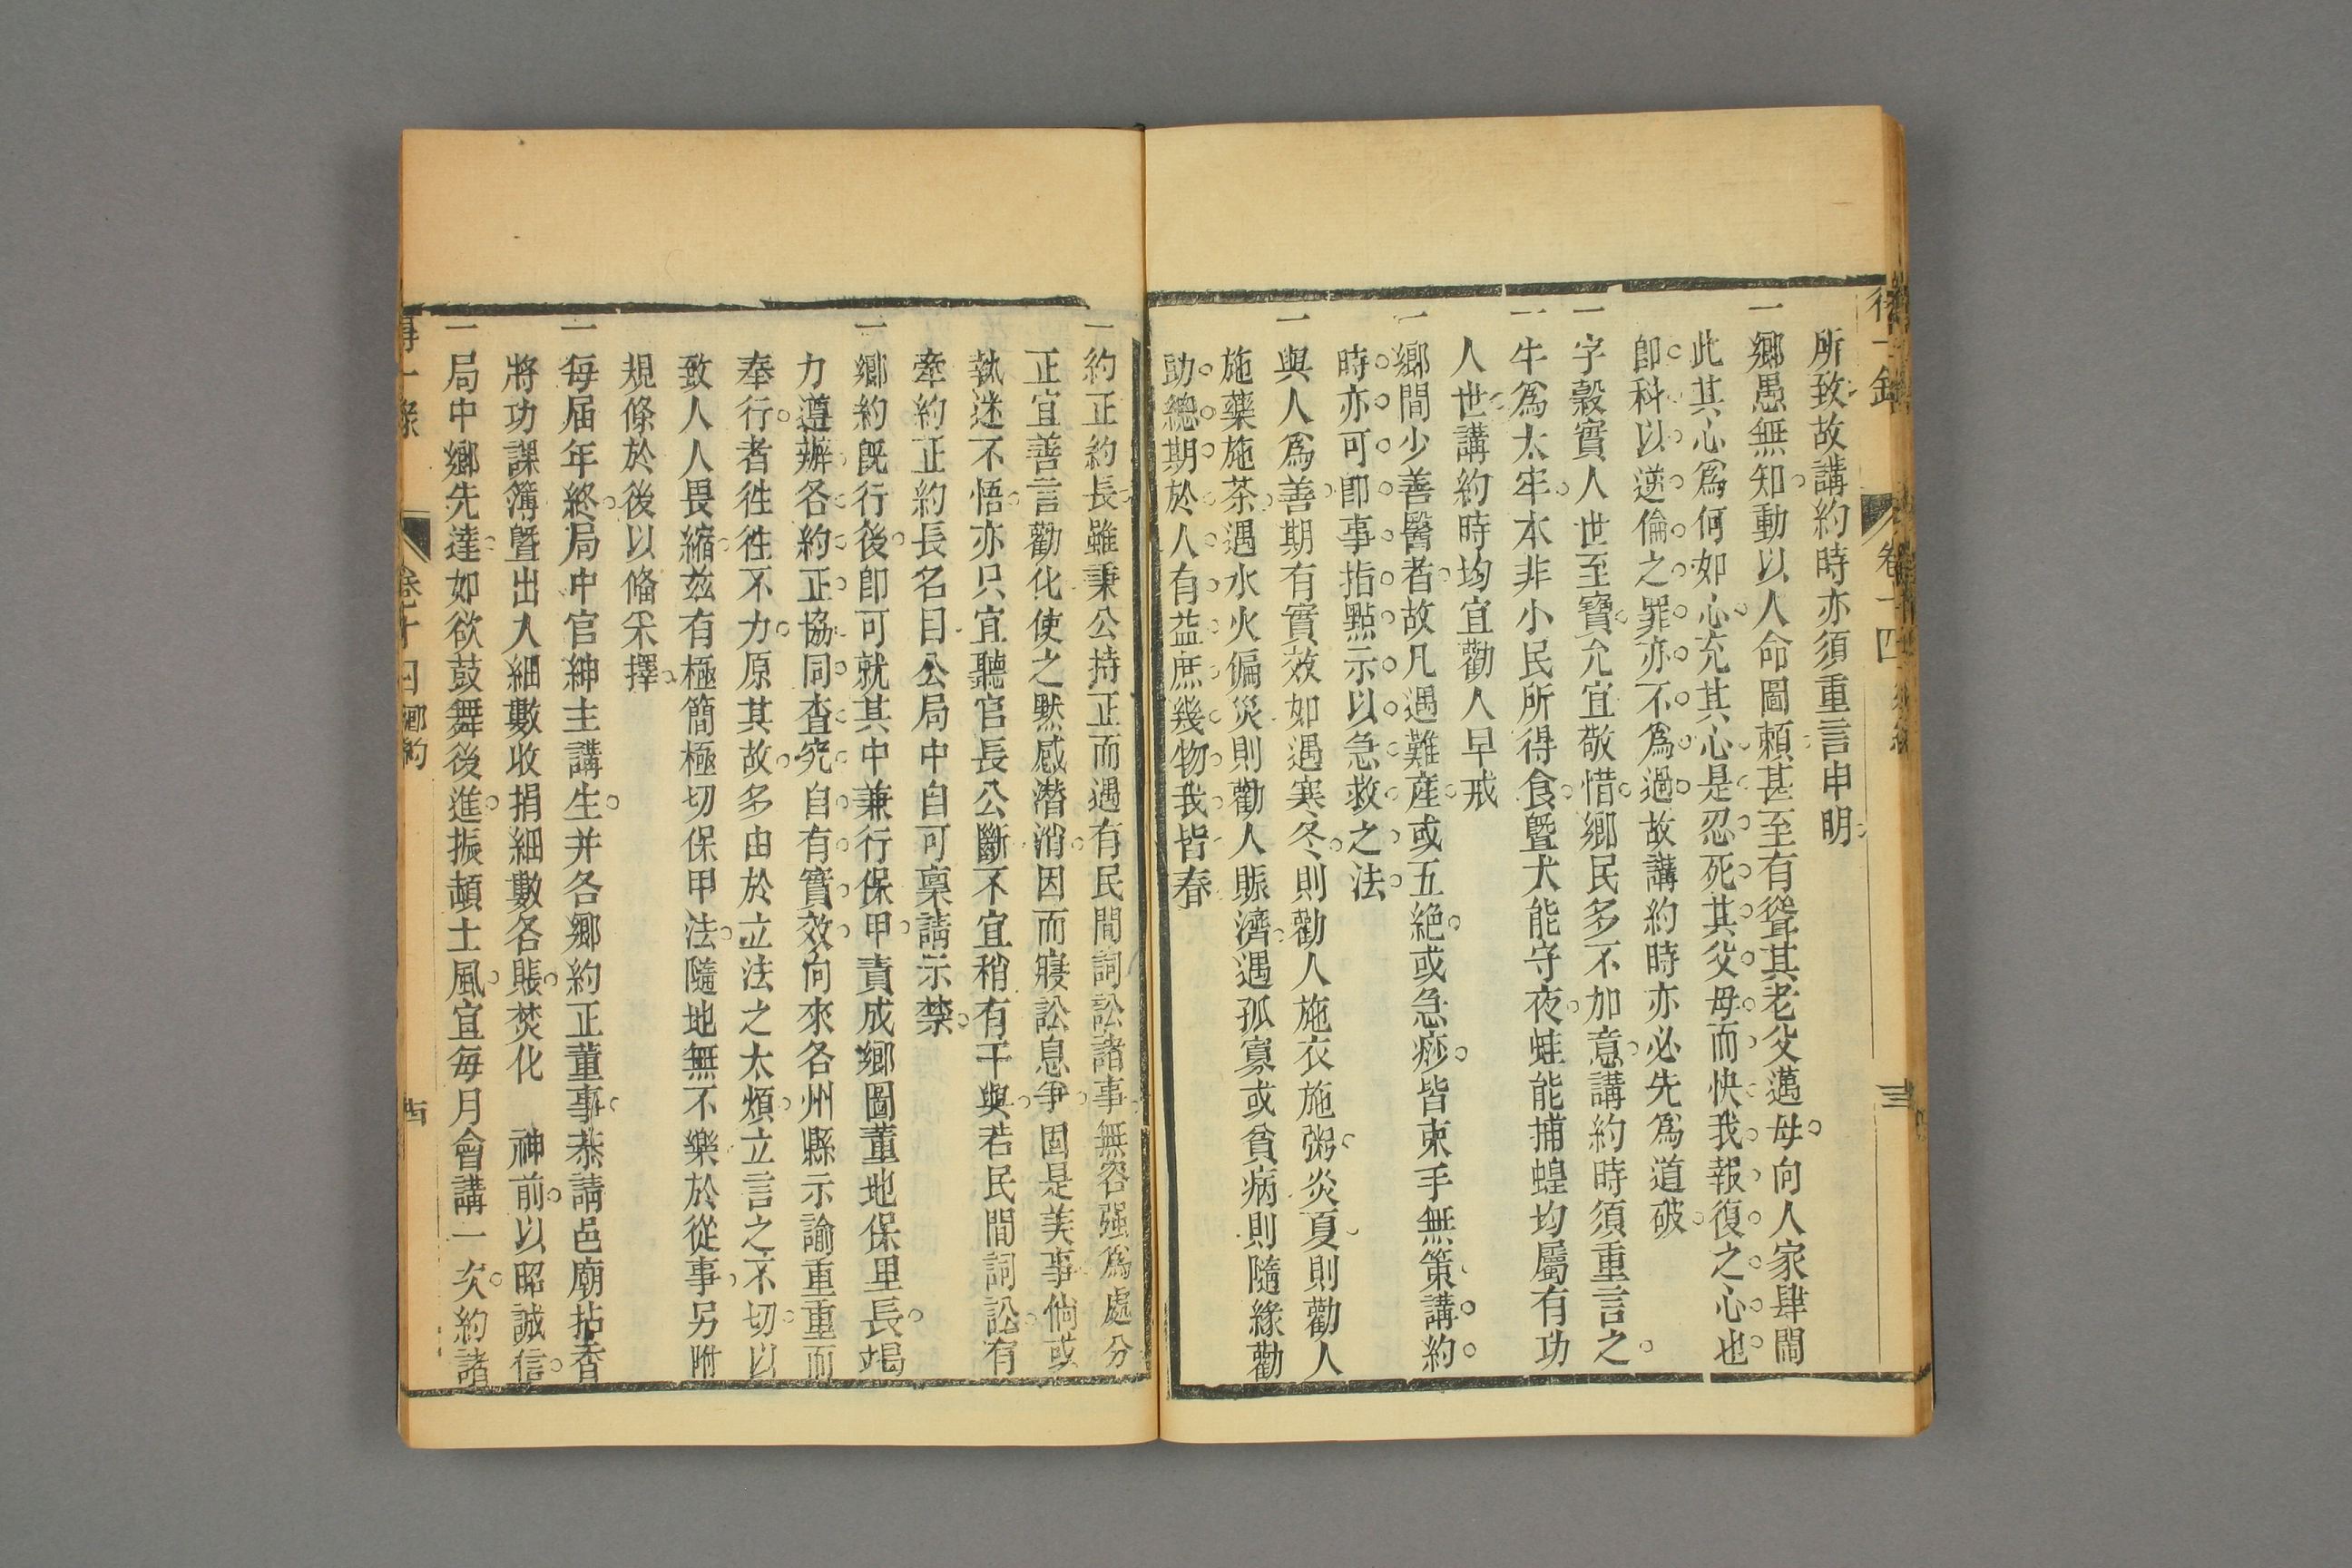 得一錄 卷十四 鄉約 三
所致故講約時亦須重言申明
一鄉愚無知動以人命圖賴甚至有聳其老父邁母向人家肆鬧
此其心爲何如心充其心是忍死其父母而快我報復之心也
卽科以逆倫之罪亦不爲過故講約時亦必先爲道破
一字穀實人世至寶允宜敬惜鄉民多不加意講約時須重言之
一牛爲太牢本非小民所得食曁犬能守夜蛙能捕蝗均屬有功
人世講約時均宜勸人早戒
一鄉間少善醫者故凡遇難產或五絕或急痧皆束手無策講約
時亦可卽事指點示以急救之法
一與人爲善期有實效如遇寒冬則勸人施衣施粥炎夏則勸人
施藥施茶遇水火偏災則勸人賑濟遇孤寡或貧病則隨緣勸
助總期於人有益庶幾物我皆春
一約正約長雖秉公持正而遇有民間詞訟諸事無容强爲處分
正宜善言勸化使之默感潛消因而寢訟息爭固是美事倘或
執迷不悟亦只宜聽官長公斷不宜稍有干與若民間詞訟有
牽約正約長名目公局中自可稟請示禁
一鄉約旣行後卽可就其中兼行保甲責成鄉圖董地保里長竭
力遵辦各約正協同查究自有實效向來各州縣示諭重重而
奉行者徃徃不力原其故多由於立法之太煩立言之不切以
致人人畏縮兹有極簡極切保甲法隨地無不樂於從事另附
規條於後以偹采擇
一每屆年終局中官紳主講生并各鄉約正董事恭請邑廟拈香
將功課簿曁出入細數收捐細數各賬焚化　神前以昭誠信
一局中鄉先達如欲鼓舞後進振頓士風宜每月會講一次約諸
得一錄 卷十四 鄉約